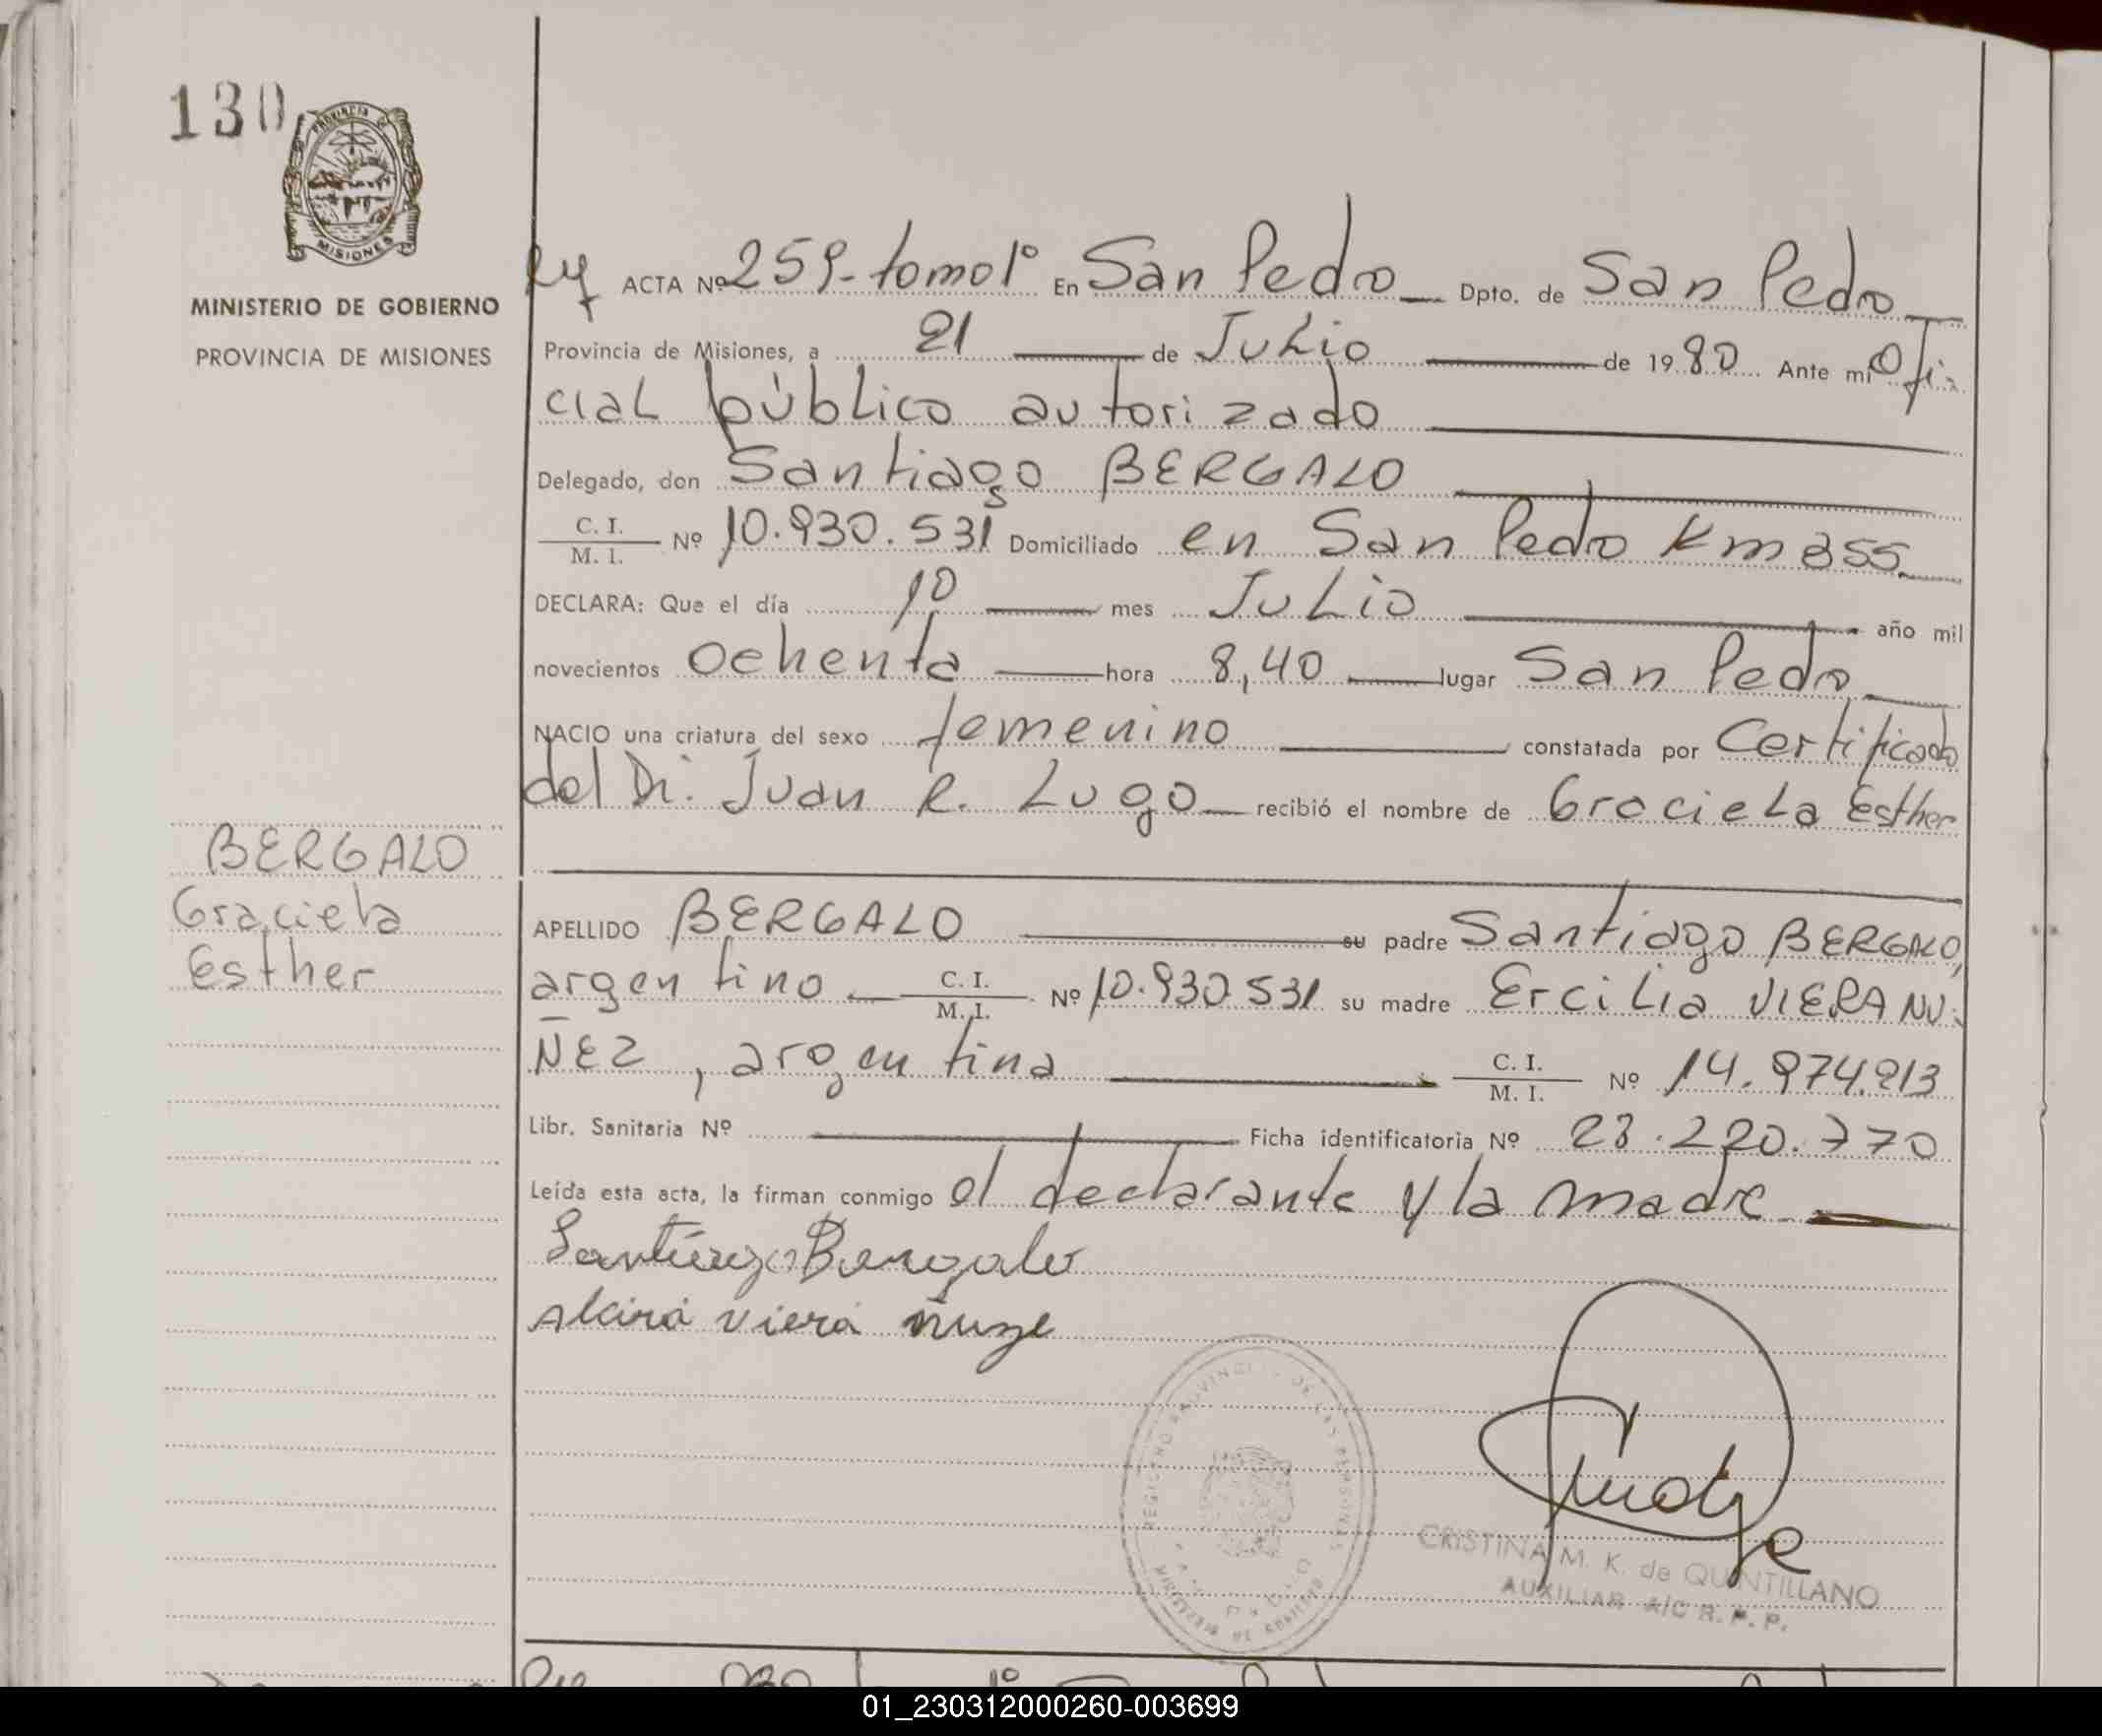 130
PROVINCIA DE
MISIONES
MINISTERIO DE GOBIERNO
PROVINCIA DE MISIONES
ACTA Nº 259-tomo1º En San Pedro Dpto. de San Pedro
Provincia de Misiones, a 21 de Julio de 1980 Ante mi Ofi-
cial público autorizado
Delegado, don Santiago BERGALO
C. I.
M. I. Nº 10.930.531 Domiciliado en San Pedro Km 355
DECLARA: Que el día 10 mes Julio año mil
novecientos Ochenta hora 8,40 lugar San Pedro
NACIO una criatura del sexo femenino constatada por Certificado
del Dr. Juan R. Lugo recibió el nombre de Graciela Esther
BERGALO
Graciela
Esther
APELLIDO BERGALO su padre Santiago BERGALO,
argentino C. I.
M. I. Nº 10.930.531 su madre Ercilia VIERA NU-
ÑEZ, argentina C. I.
M. I. Nº 14.974.213
Libr. Sanitaria Nº Ficha identificatoria Nº 28.220.770
Leída esta acta, la firman conmigo el declarante y la madre
Santiago Bergalo
Alcira viera ñuze
REGISTRO PROVINCIAL DE LAS PERSONAS
MINISTERIO DE GOBIERNO
CRISTINA M. K. de QUINTILLANO
AUXILIAR A/C R. P. P.
01_230312000260-003699